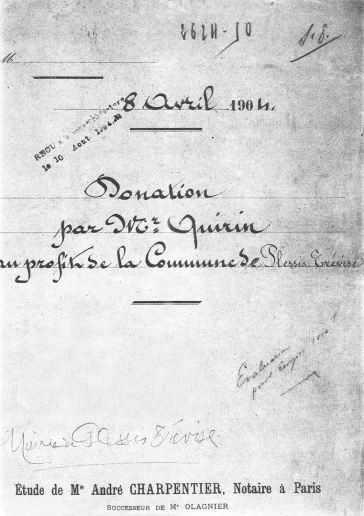 2624-50
8 Avril 1904.
le 10 Août 1904
Donation
par Mr. Quirin
au profit de la Commune de Plessis Trévise
Mairie de Plessis Trévise.
Etude de Me André CHARPENTIER, Notaire à Paris
SUCCESSEUR DE Me OLAGNIER